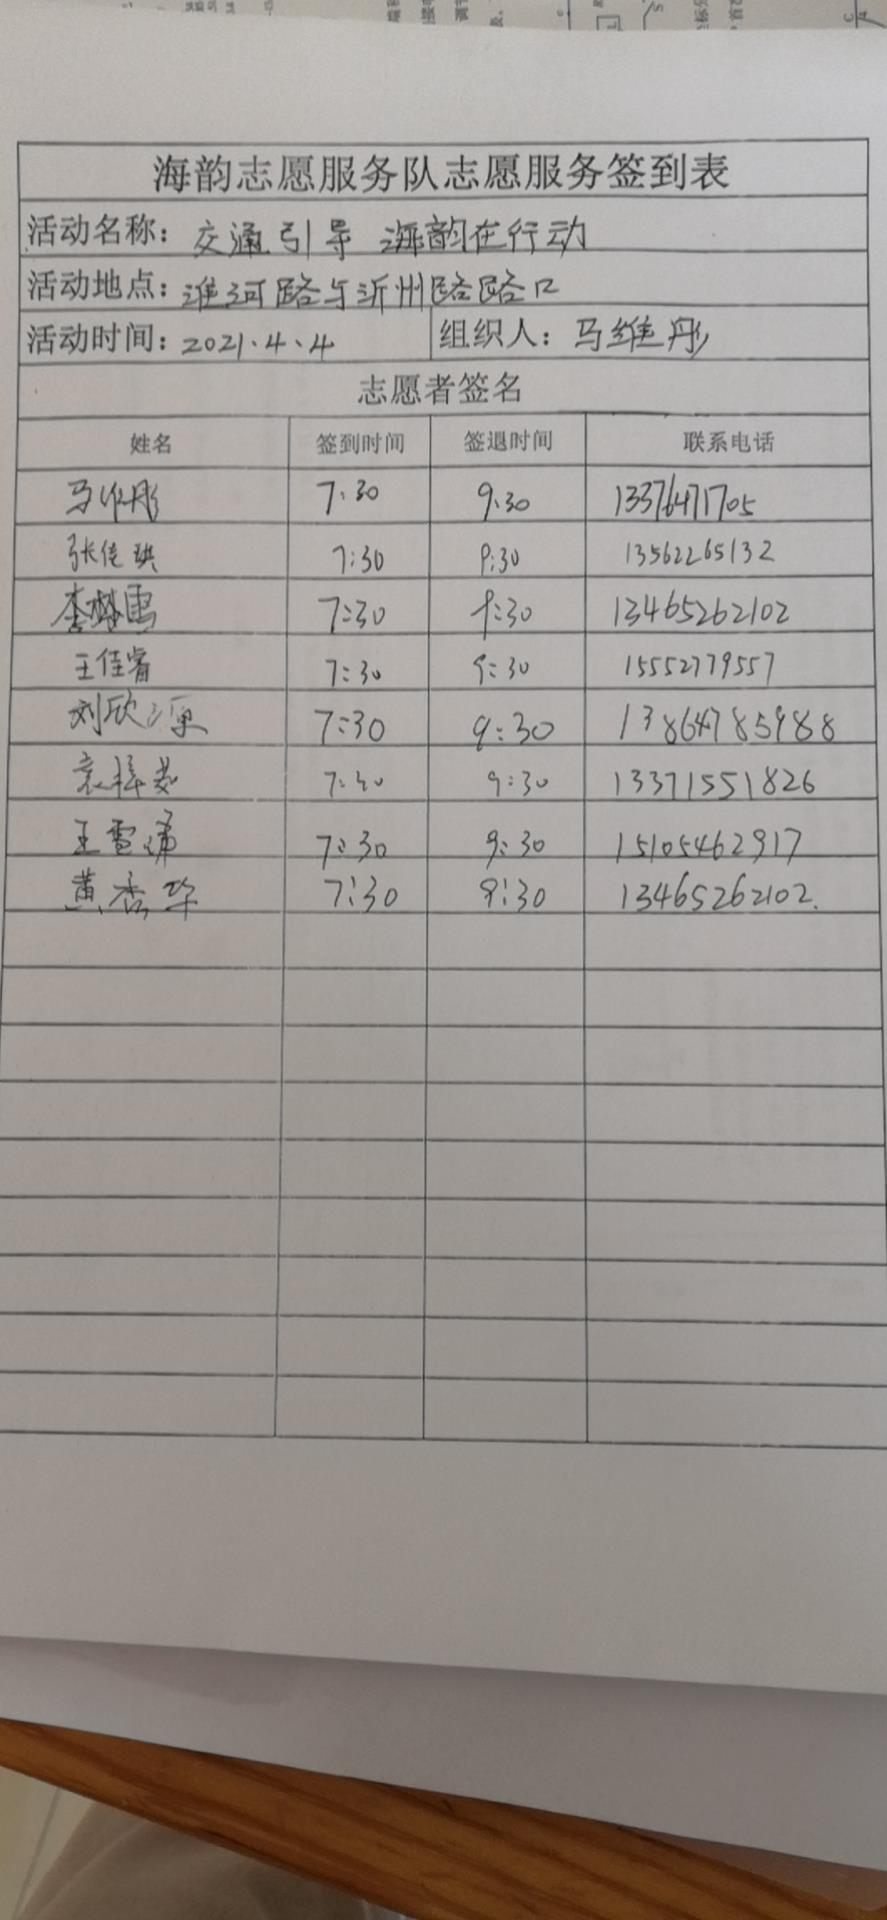 海韵志愿服务队志愿服务签到表
活动名称：交通引导 海韵在行动
活动地点：淮河路与沂州路路口
活动时间：2021.4.4 组织人：马维彤
志愿者签名
姓名 签到时间 签退时间 联系电话
马维彤 7:30 9:30 13376471705
张佳琪 7:30 9:30 13562265132
李 雪 7:30 9:30 13465262102
王佳睿 7:30 9:30 15552779557
刘欣源 7:30 9:30 13864785988
袁梓 7:30 9:30 13371551826
王雪 7:30 9:30 15105462917
黄秀华 7:30 9:30 13465262102.